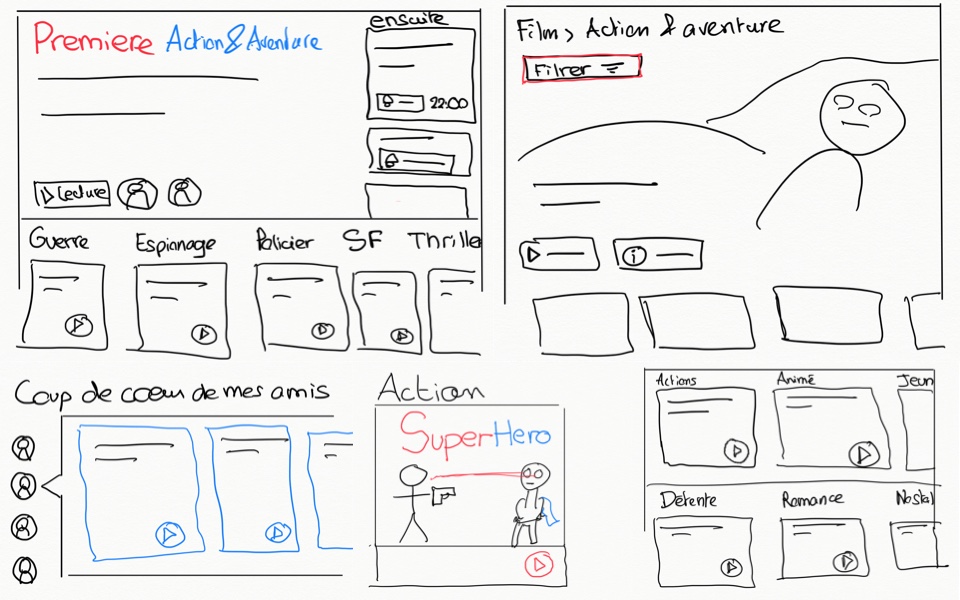 Premiere Action&Aventure
ensuite
22:00
Lecture
Guerre Espionage Policier SF Thrille
Film > Action & aventure
Filrer
Coup de cœur de mes amis
Action
SuperHero
Actions Animé Jeun
Détente Romance Nostal